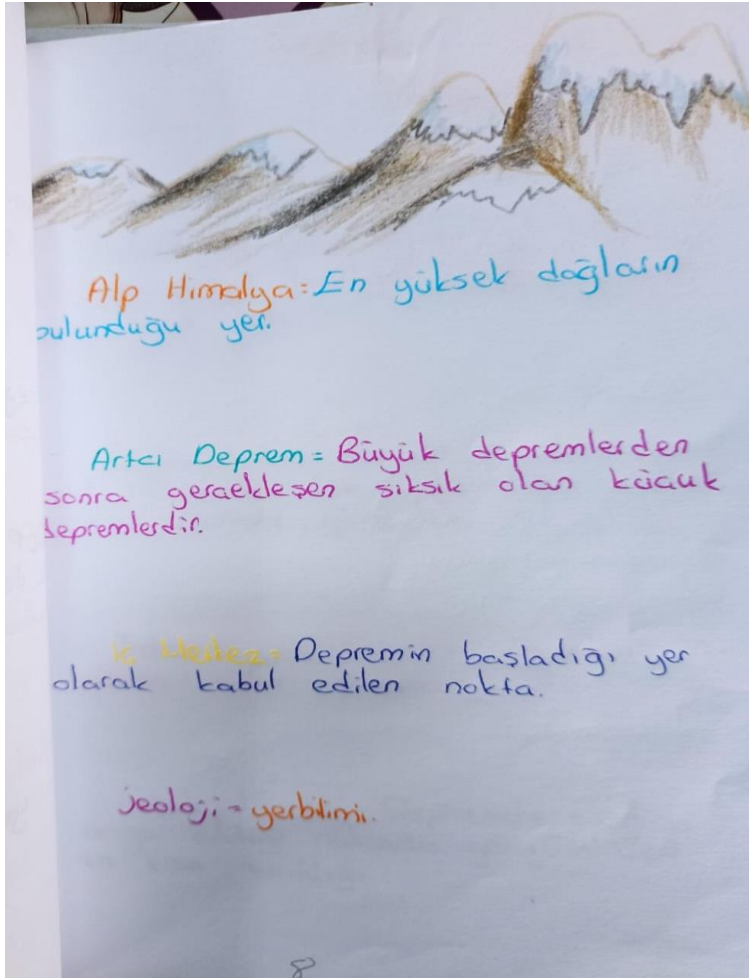 Alp Himalya: En yüksek dağların
bulunduğu yer.
Artcı Deprem = Büyük depremlerden
sonra gerçekleşen sıksık olan küçük
depremlerdir.
İç Merkez = Depremin başladığı yer
olarak kabul edilen nokta.
jeoloji = yerbilimi.
8